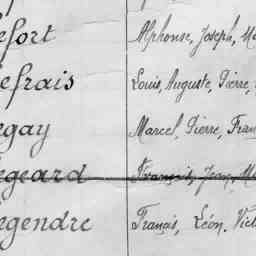 efort Alphonse, Joseph, Ma
efrais Louis, Auguste, Pierre,
egay Marcel, Pierre, Fran
egeard François, Jean, M
egendre Francis, Léon, Vict